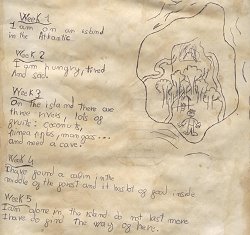 Week 1
I am on an island
in the Atlantic
Week 2
I am hungry, tired
And sad.
Week 3
On the island there are
three rivers, lots of
fruits: coconuts,
pineapples, mangos...
and need a cave.
Week 4
I have found a cabin in the
middle of the forest and it has lot of good inside
Week 5
I am alone in the island do not last more
I have do find the way of here.